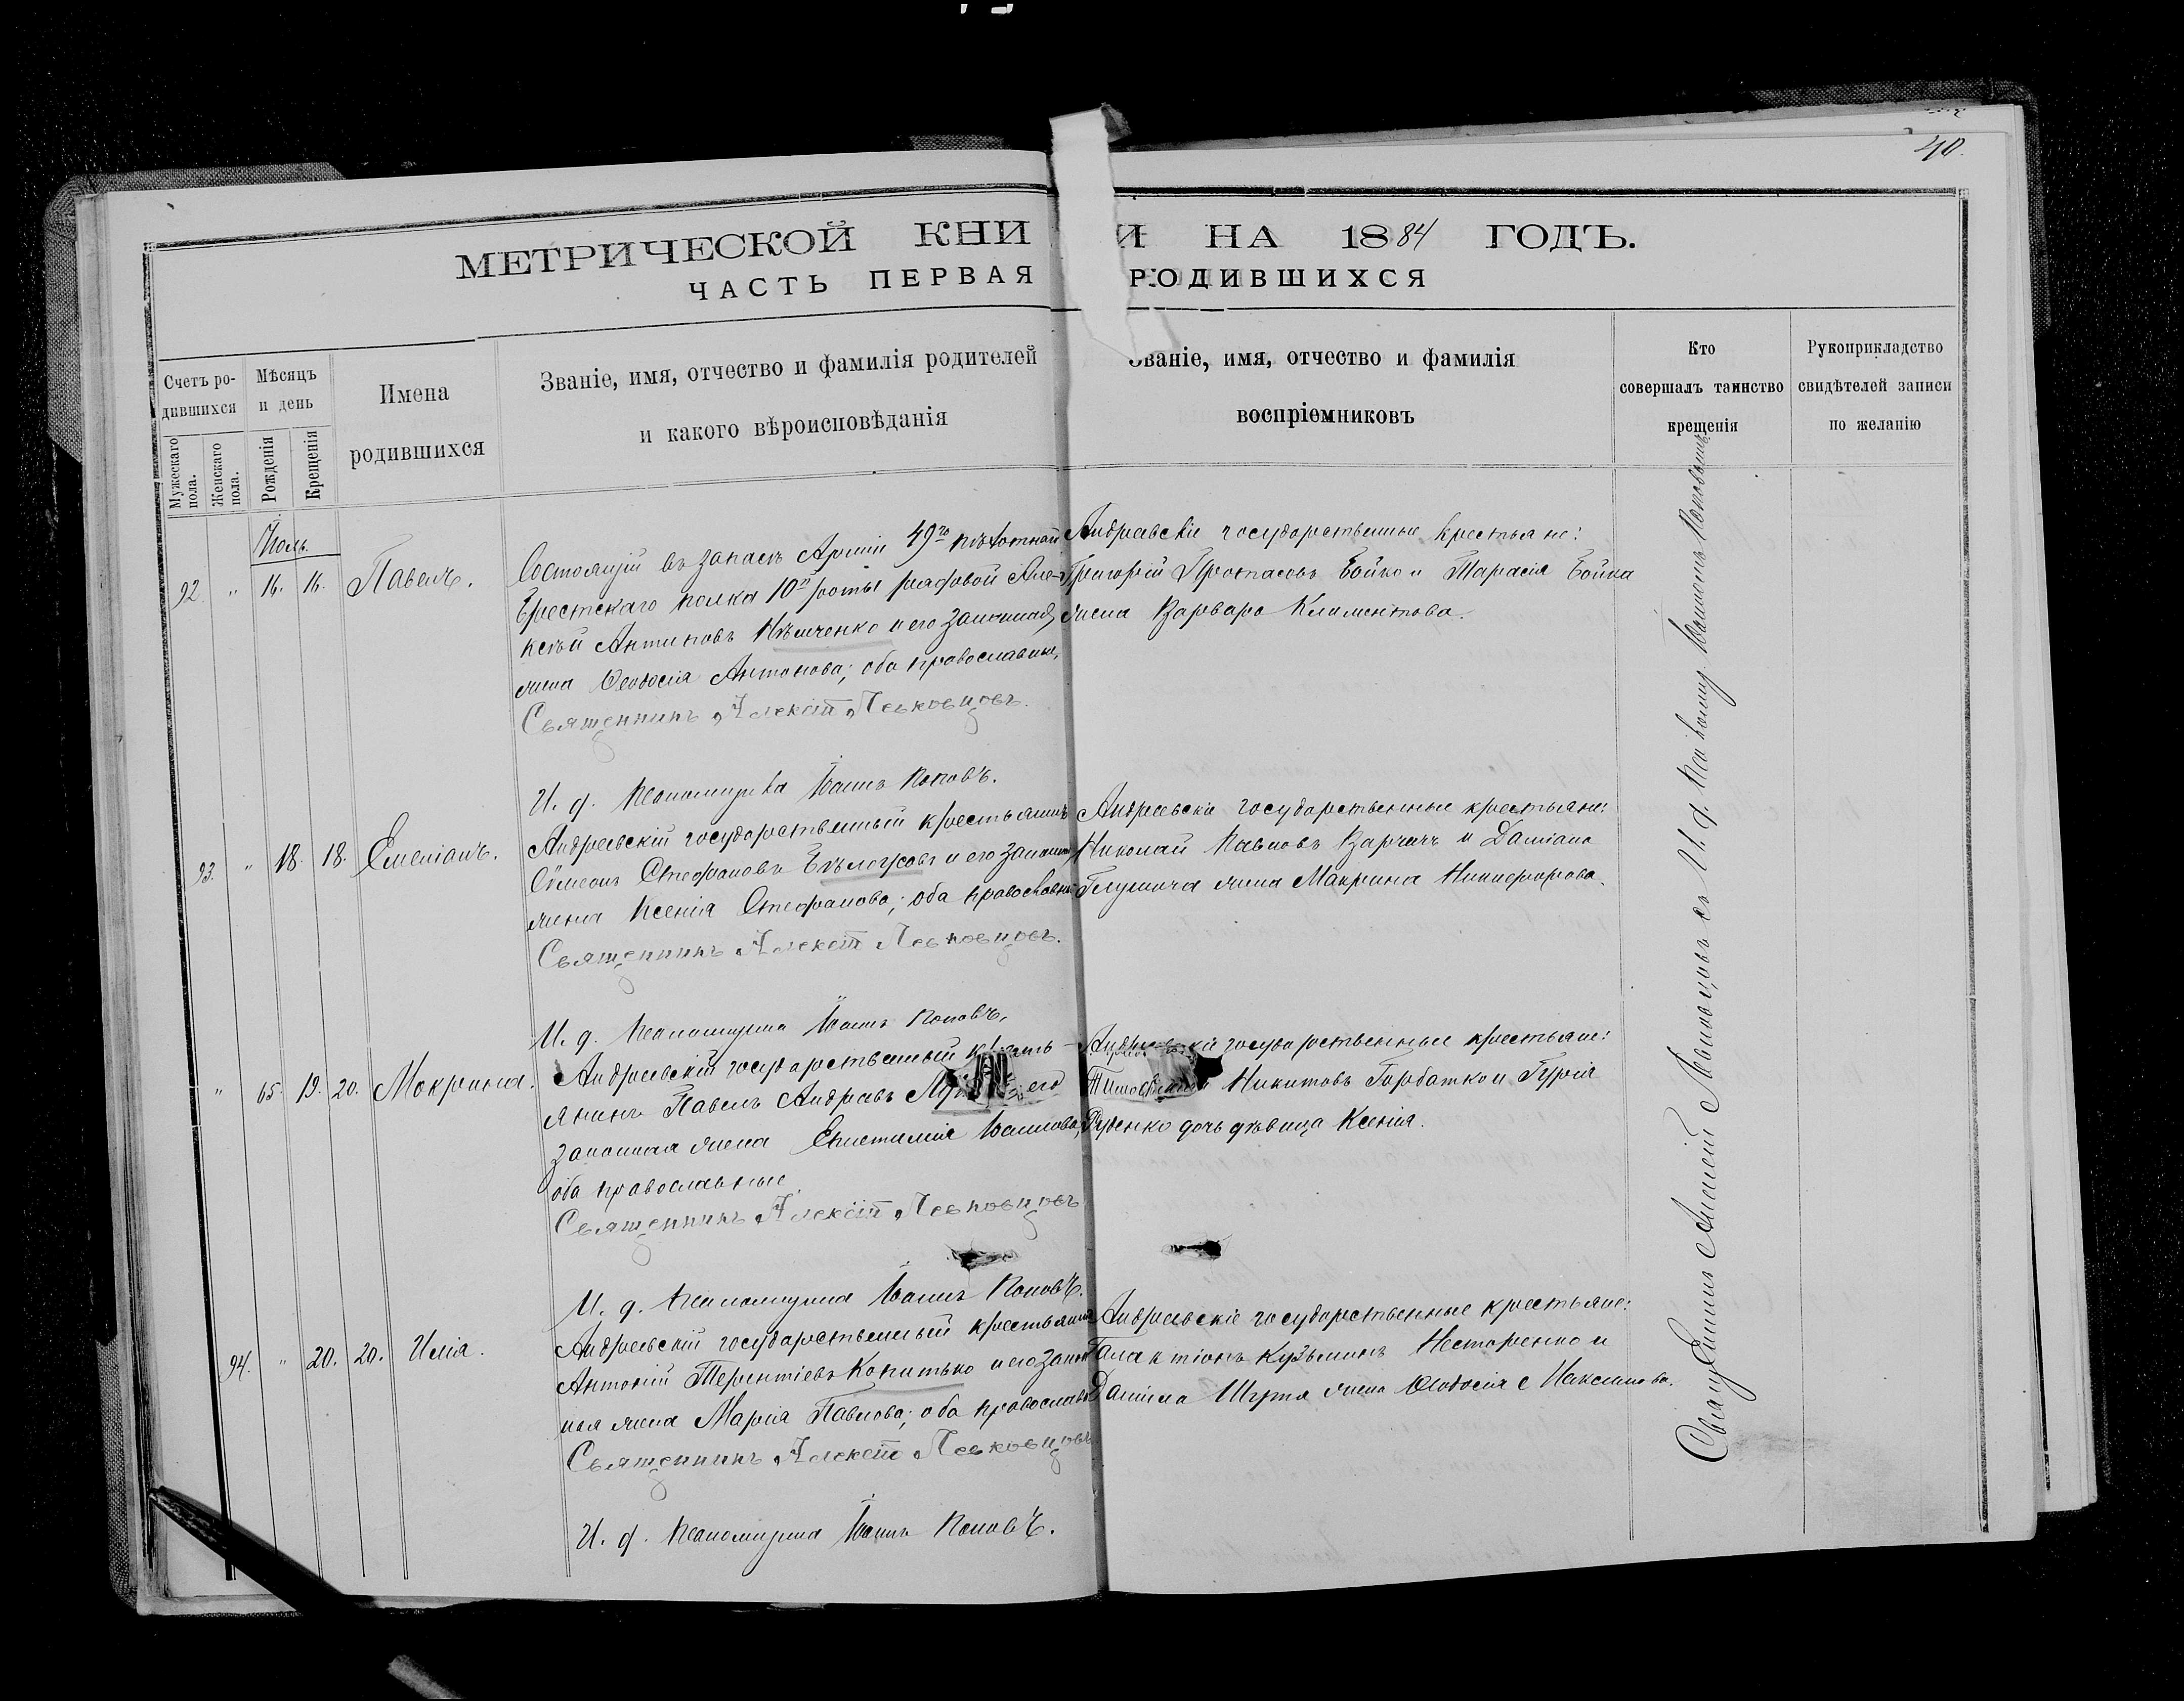 40.
МЕТРИЧЕСКОЙ КНИ И НА 1884 ГОДЪ.
ЧАСТЬ ПЕРВАЯ РОДИВШИХСЯ
Счетъ ро-
дившихся
Мужескаго
пола.
Женскаго
пола.
Мѣсяцъ
и день
Рожденія
Крещенія
Имена
родившихся
Званіе, имя, отчество и фамилія родителей
и какого вѣроисповѣданія
Званіе, имя, отчество и фамилія
воспріемниковъ
Кто
совершалъ таинство
крещенія
Рукоприкладство
свидѣтелей записи
по желанію
Іюль.
92. " 16. 16. Павелъ.
Состоящій въ запасѣ Арміи 49го пѣхотнаго
Брестскаго полка 10й роты рядовой Але-
ксѣй Антиповъ Нѣмченко и его законная
жена Ѳеодосія Антонова; оба православные,
Священникъ Алексій Левковцовъ.
И. д. Псаломщика Іоаннъ Поповъ.
Андреевскіе государственные крестьяне:
Григорій Протасовъ Бойко и Тарасія Бойка
жена Варвара Климентова.
93. " 18. 18. Емеліанъ.
Андреевскій государственный крестьянинъ
Сѵмеонъ Стефановъ Бѣлоусовъ и его законная
жена Ксенія Стефанова; оба православные
Священникъ Алексій Левковцовъ.
И. д. Псаломщика Іоаннъ Поповъ.
Андреевскіе государственные крестьяне:
Николай Павловъ и Даміана
жена Макрина Никифорова.
" 65. 19. 20. Мокрина.
Андреевскій государственный кресть-
янинъ Павелъ Андреевъ его
законная жена Епистимія Іоаннова;
оба православные.
Священникъ Алексій Левковцовъ
И. д. Псаломщика Іоаннъ Поповъ.
государственные крестьяне:
Никитовъ Горбатко и Гурія
Руденко дочь дѣвица Ксенія.
94. " 20. 20. Илія.
Андреевскій государственный крестьянинъ
Антоній Терентіевъ Копитько и его закон-
ная жена Марія Павлова; оба православные
Священникъ Алексій Левковцовъ.
И. д. Псаломщика Іоаннъ Поповъ.
Андреевскіе государственные крестьяне:
Галактіонъ Кузьминъ Нестеренко и
Даніила жена Ѳеодосія Максимова.
Священникъ Алексій Левковцовъ съ И. д. Псаломщ. Іоанномъ Поповымъ